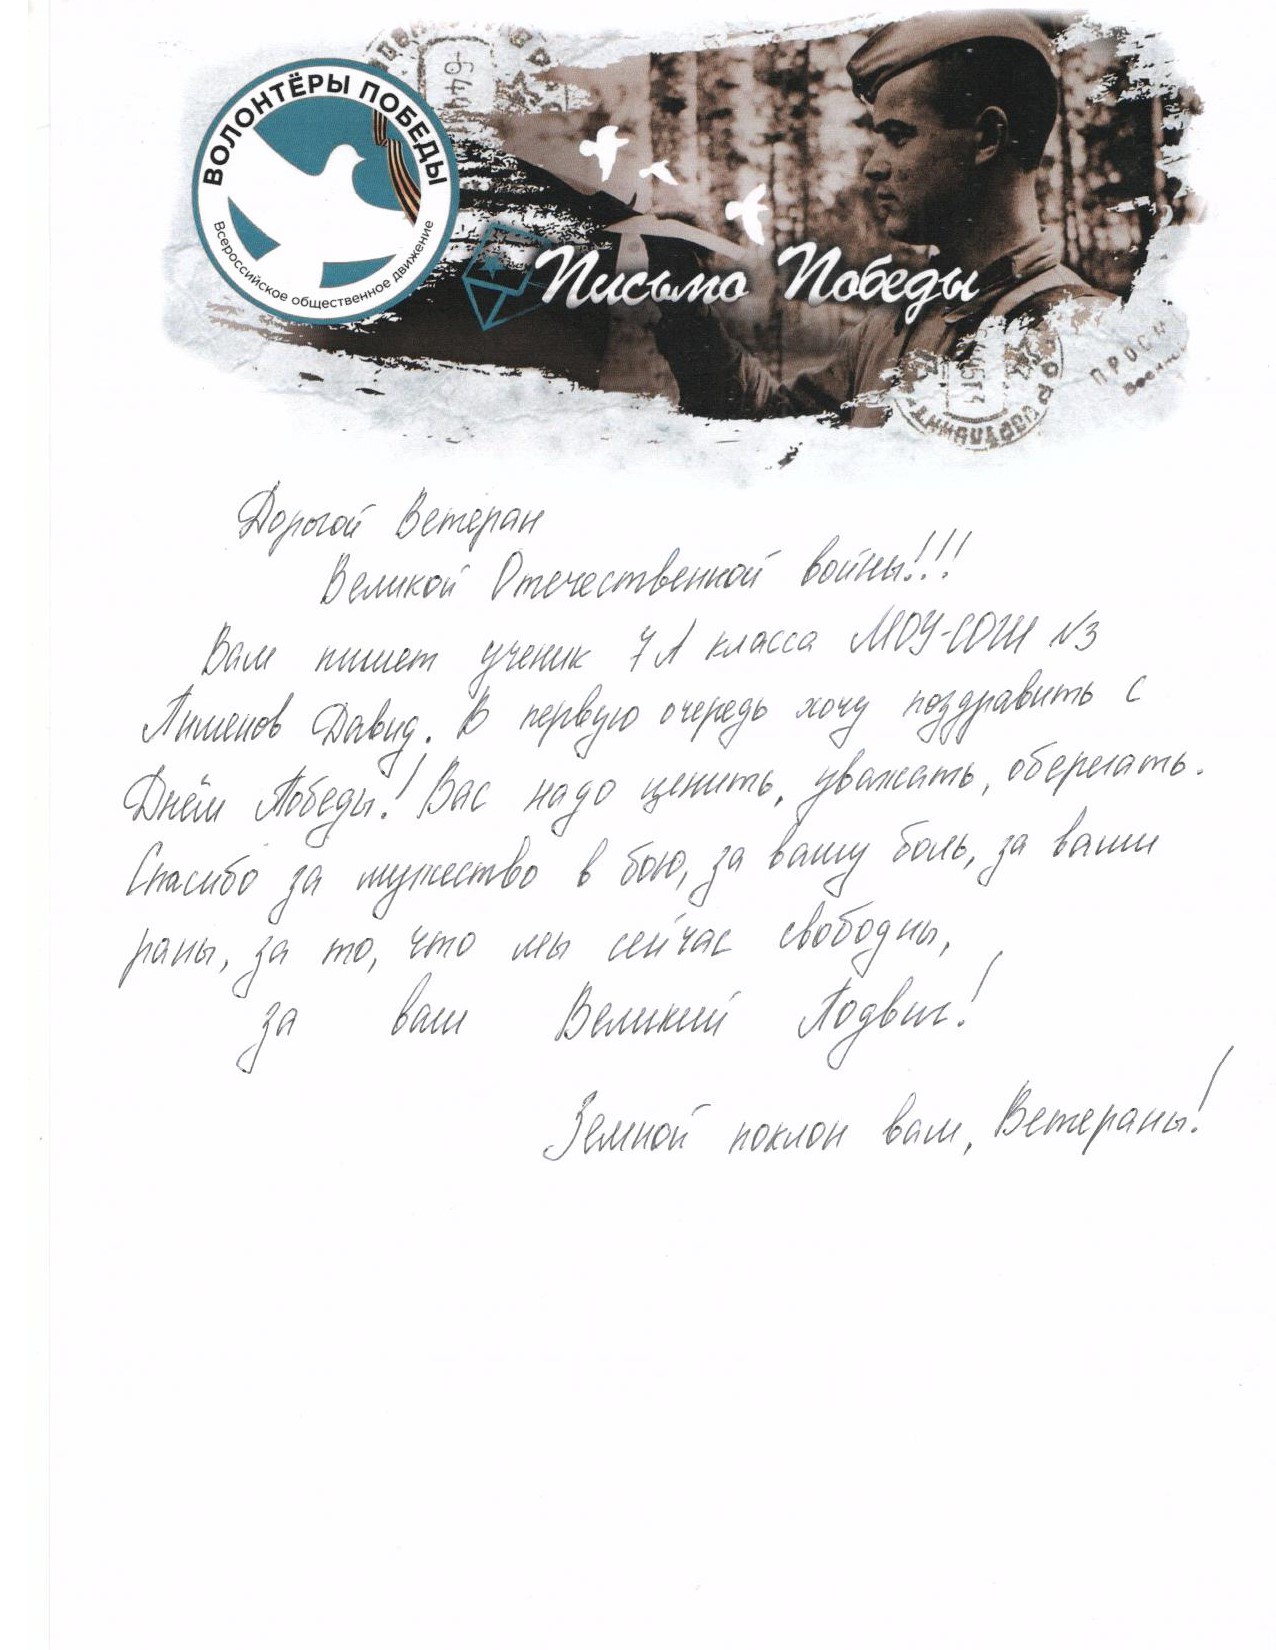 ВОЛОНТЁРЫ ПОБЕДЫ
Всероссийское общественное движение
Письмо Победы
Дорогой Ветеран
Великой Отечественной войны!!!
Вам пишет ученик 7А класса МОУ-СОШ №3
Пименов Давид. В первую очередь хочу поздравить с
Днём Победы! Вас надо ценить, уважать, оберегать.
Спасибо за мужество в бою, за вашу боль, за ваши
раны, за то, что мы сейчас свободны,
за ваш Великий Подвиг!
Земной поклон вам, Ветераны!